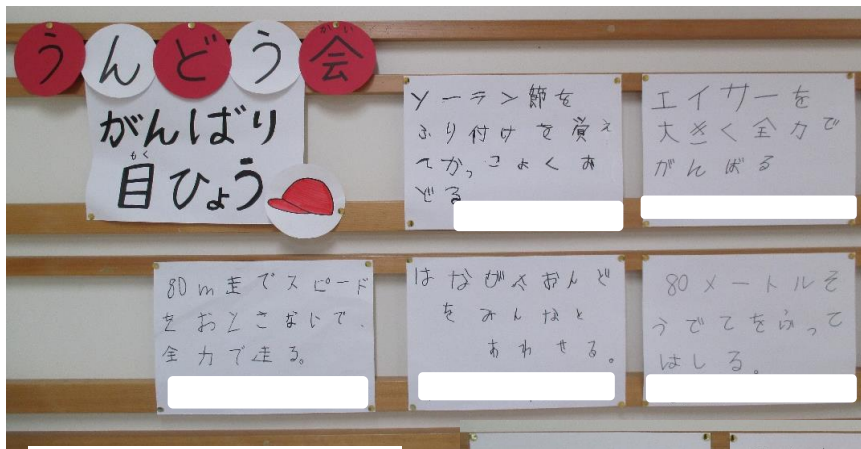 うんどう会
がんばり
目ひょう
ソーラン節を
ふり付けを覚え
てかっこよくお
どる
エイサーを
大きく全力で
がんばる
80m走でスピード
をおとさないで、
全力で走る。
はなびべおんど
をみんなと
あわせる。
80メートルそ
うでてをふって
はしる。